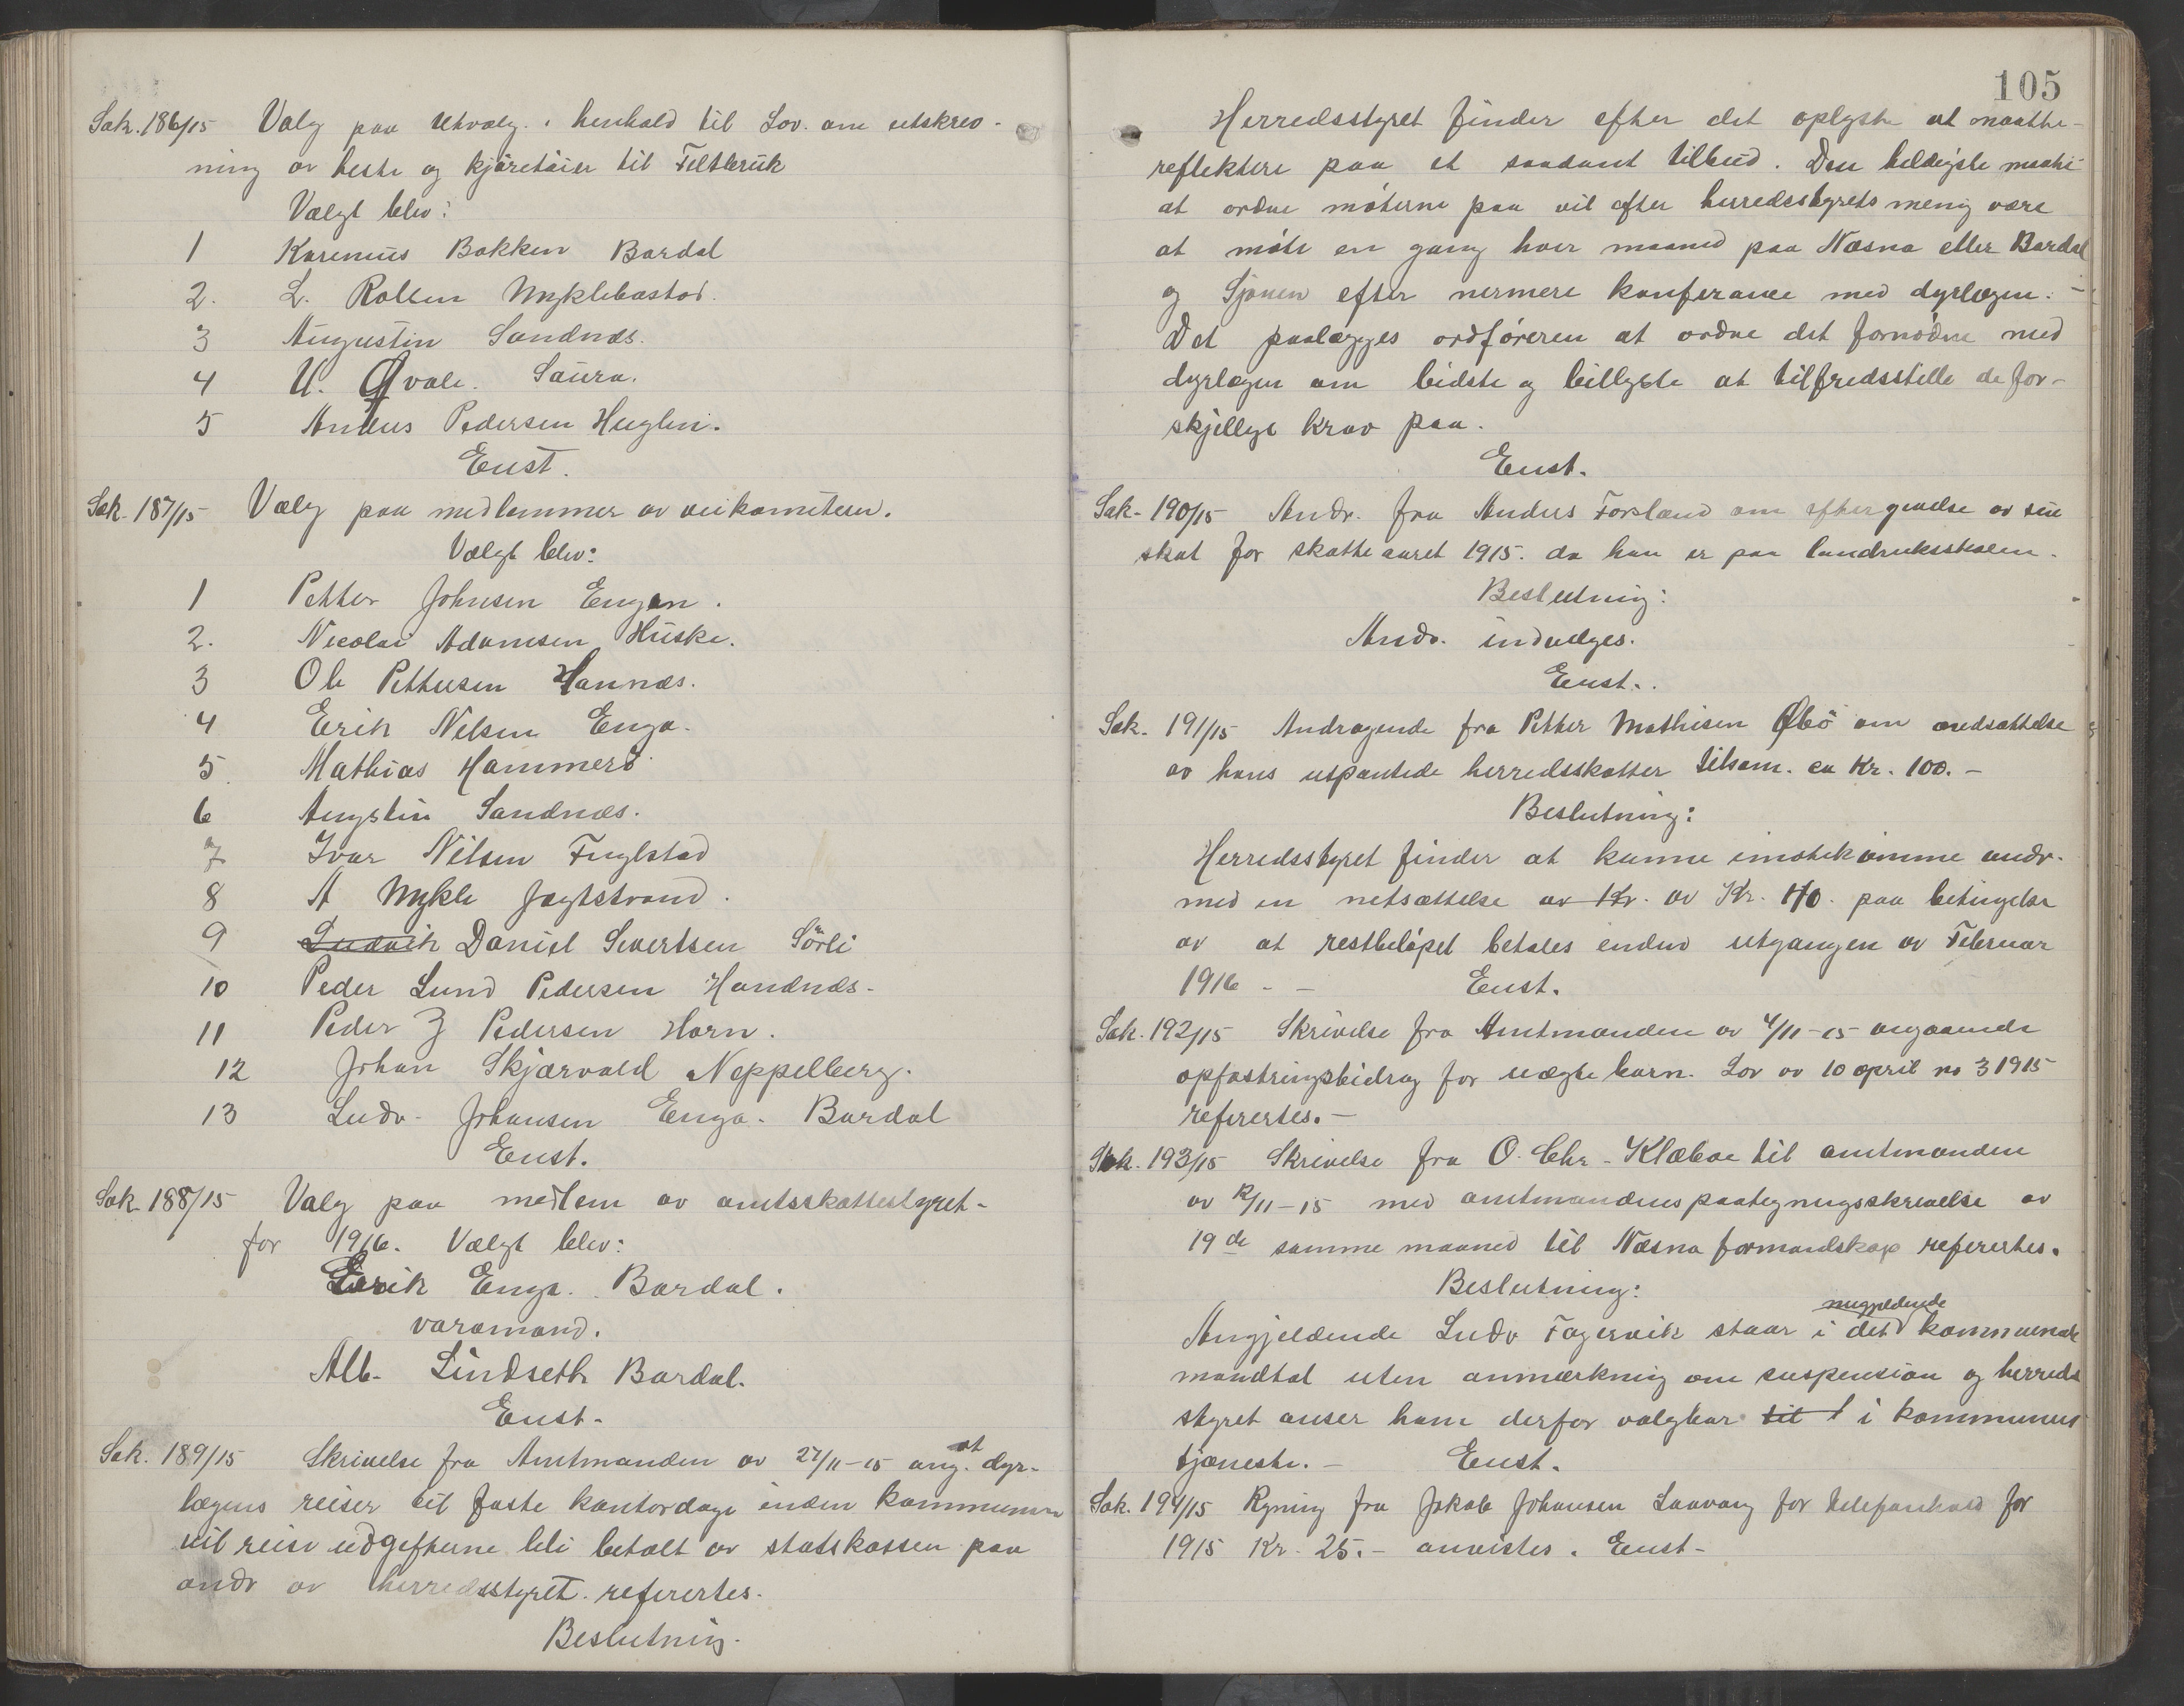 Sak. 186/15 Valg paa Utvalg i henhold til Lov om utskrev-
ning av heste og kjöretöier til Feltbruk
Valgt blev:
1 Karenius Bakken Bardal
2. L. Rölben Myklebostad.
3 Augustin Sandnæs.
4 U. Qvale. Saura.
5 Anders Pedersen Huglen.
Enst.
Sak. 187/15 Valg paa medlemmer av veikomiteen.
Valgt blev:
1 Petter Johnsen Engan.
2. Nicolai Adamsen Huske.
3 Ole Pettersen Hannæs.
4 Erik Nilsen Enga.
5. Mathias Hammerö
6 Augstin Sandnæs.
7 Ivar Nilsen Fuglstad
8 A Mykle Jagtstrand.
9 Ludvik Daniel Sivertsen Sörli
10 Peder Lund Pedersen Handnæs.
11 Peder Z Pedersen Horn.
12 Johan Skjærvold Neppelberg.
13 Ludv. Johansen Enga. Bardal
Enst.
Sak. 188/15 Valg paa medlem av amtsskattestyret.
for 1916. Valgt blev:
Erik Enga. Bardal.
varamand.
Alb. Lindseth Bardal.
Enst.
Sak. 189/15 Skrivelse fra Amtmanden av 27/11-15 ang. at dyr-
lægens reiser til faste kontordage inden kommunen
vil reise udgifterne bli betalt av statskassen paa
andr av herredsstyret. refererertes.
Beslutning.
105
Herredsstyret finder efter det oplyste at maatte
reflektere paa et saadant tilbud. Den heldigste maate
at ordne möterne paa vil efter herredsstyrets mening være
at möte en gang hver maaned paa Næsna eller Bardal
og Sjonen efter nermere konferance med dyrlægen. -
Det paalægges ordföreren at ordne det fornödne med
dyrlægen om bedste og billigste at tilfredsstille de for-
skjellige krav paa.
Enst.
Sak. 190/15 Andr. fra Anders Forsland om eftergivelse av sin
skat for skatteaaret 1915. da han er paa landbruksskolen.
Beslutning:
Andr. indvilges.
Enst..
Sak. 191/15 Andragende fra Petter Mathisen Øbö om nedsættelse
av hans utpantede herredsskatter tilsam. ca Kr. 100. -
Beslutning:
Herredsstyret finder at kunne imötekomme andr.
med en netsættelse av Kr. av Kr. 40. paa betingelse
av at restbelöpet betales inden utgangen av Februar
1916 - - Enst.
Sak. 192/15 Skrivelse fra Amtmanden av 4/11-15 angaaende
opfostringsbidrag for uægte barn. Lov av 10 april no 3 1915
refererertes. -
Sak. 193/15 Skrivelse fra O. Chr. Klæboe til amtmanden
av 12/11-15 med amtmandens paategningsskrivelse av
19de samme maaned til Næsna formandskap refererertes.
Beslutning:
nugjeldende
Angjeldende Ludv Fagervik staar i det kommunale
mandtal uten anmerkning om suspension og herreds
styret anser ham derfor valgbar til i kommunens
tjeneste. - Enst.
Sak. 194/15 Rgning fra Jakob Johansen Laavong for telefonhold for
1915 Kr. 25. - anvistes. Enst-